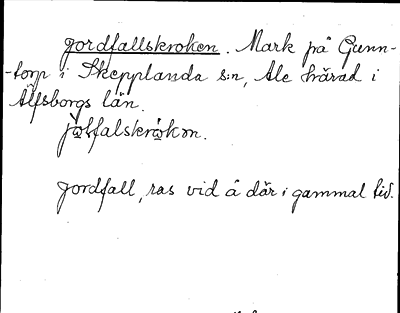 Jordfallskroken. Mark på Gunn-
-torp i Skepplanda s:n, Ale härad i
Älfsborgs län.
jo̤ṭfalskrọkɔn.
Jordfall, ras vid å där i gammal tid.